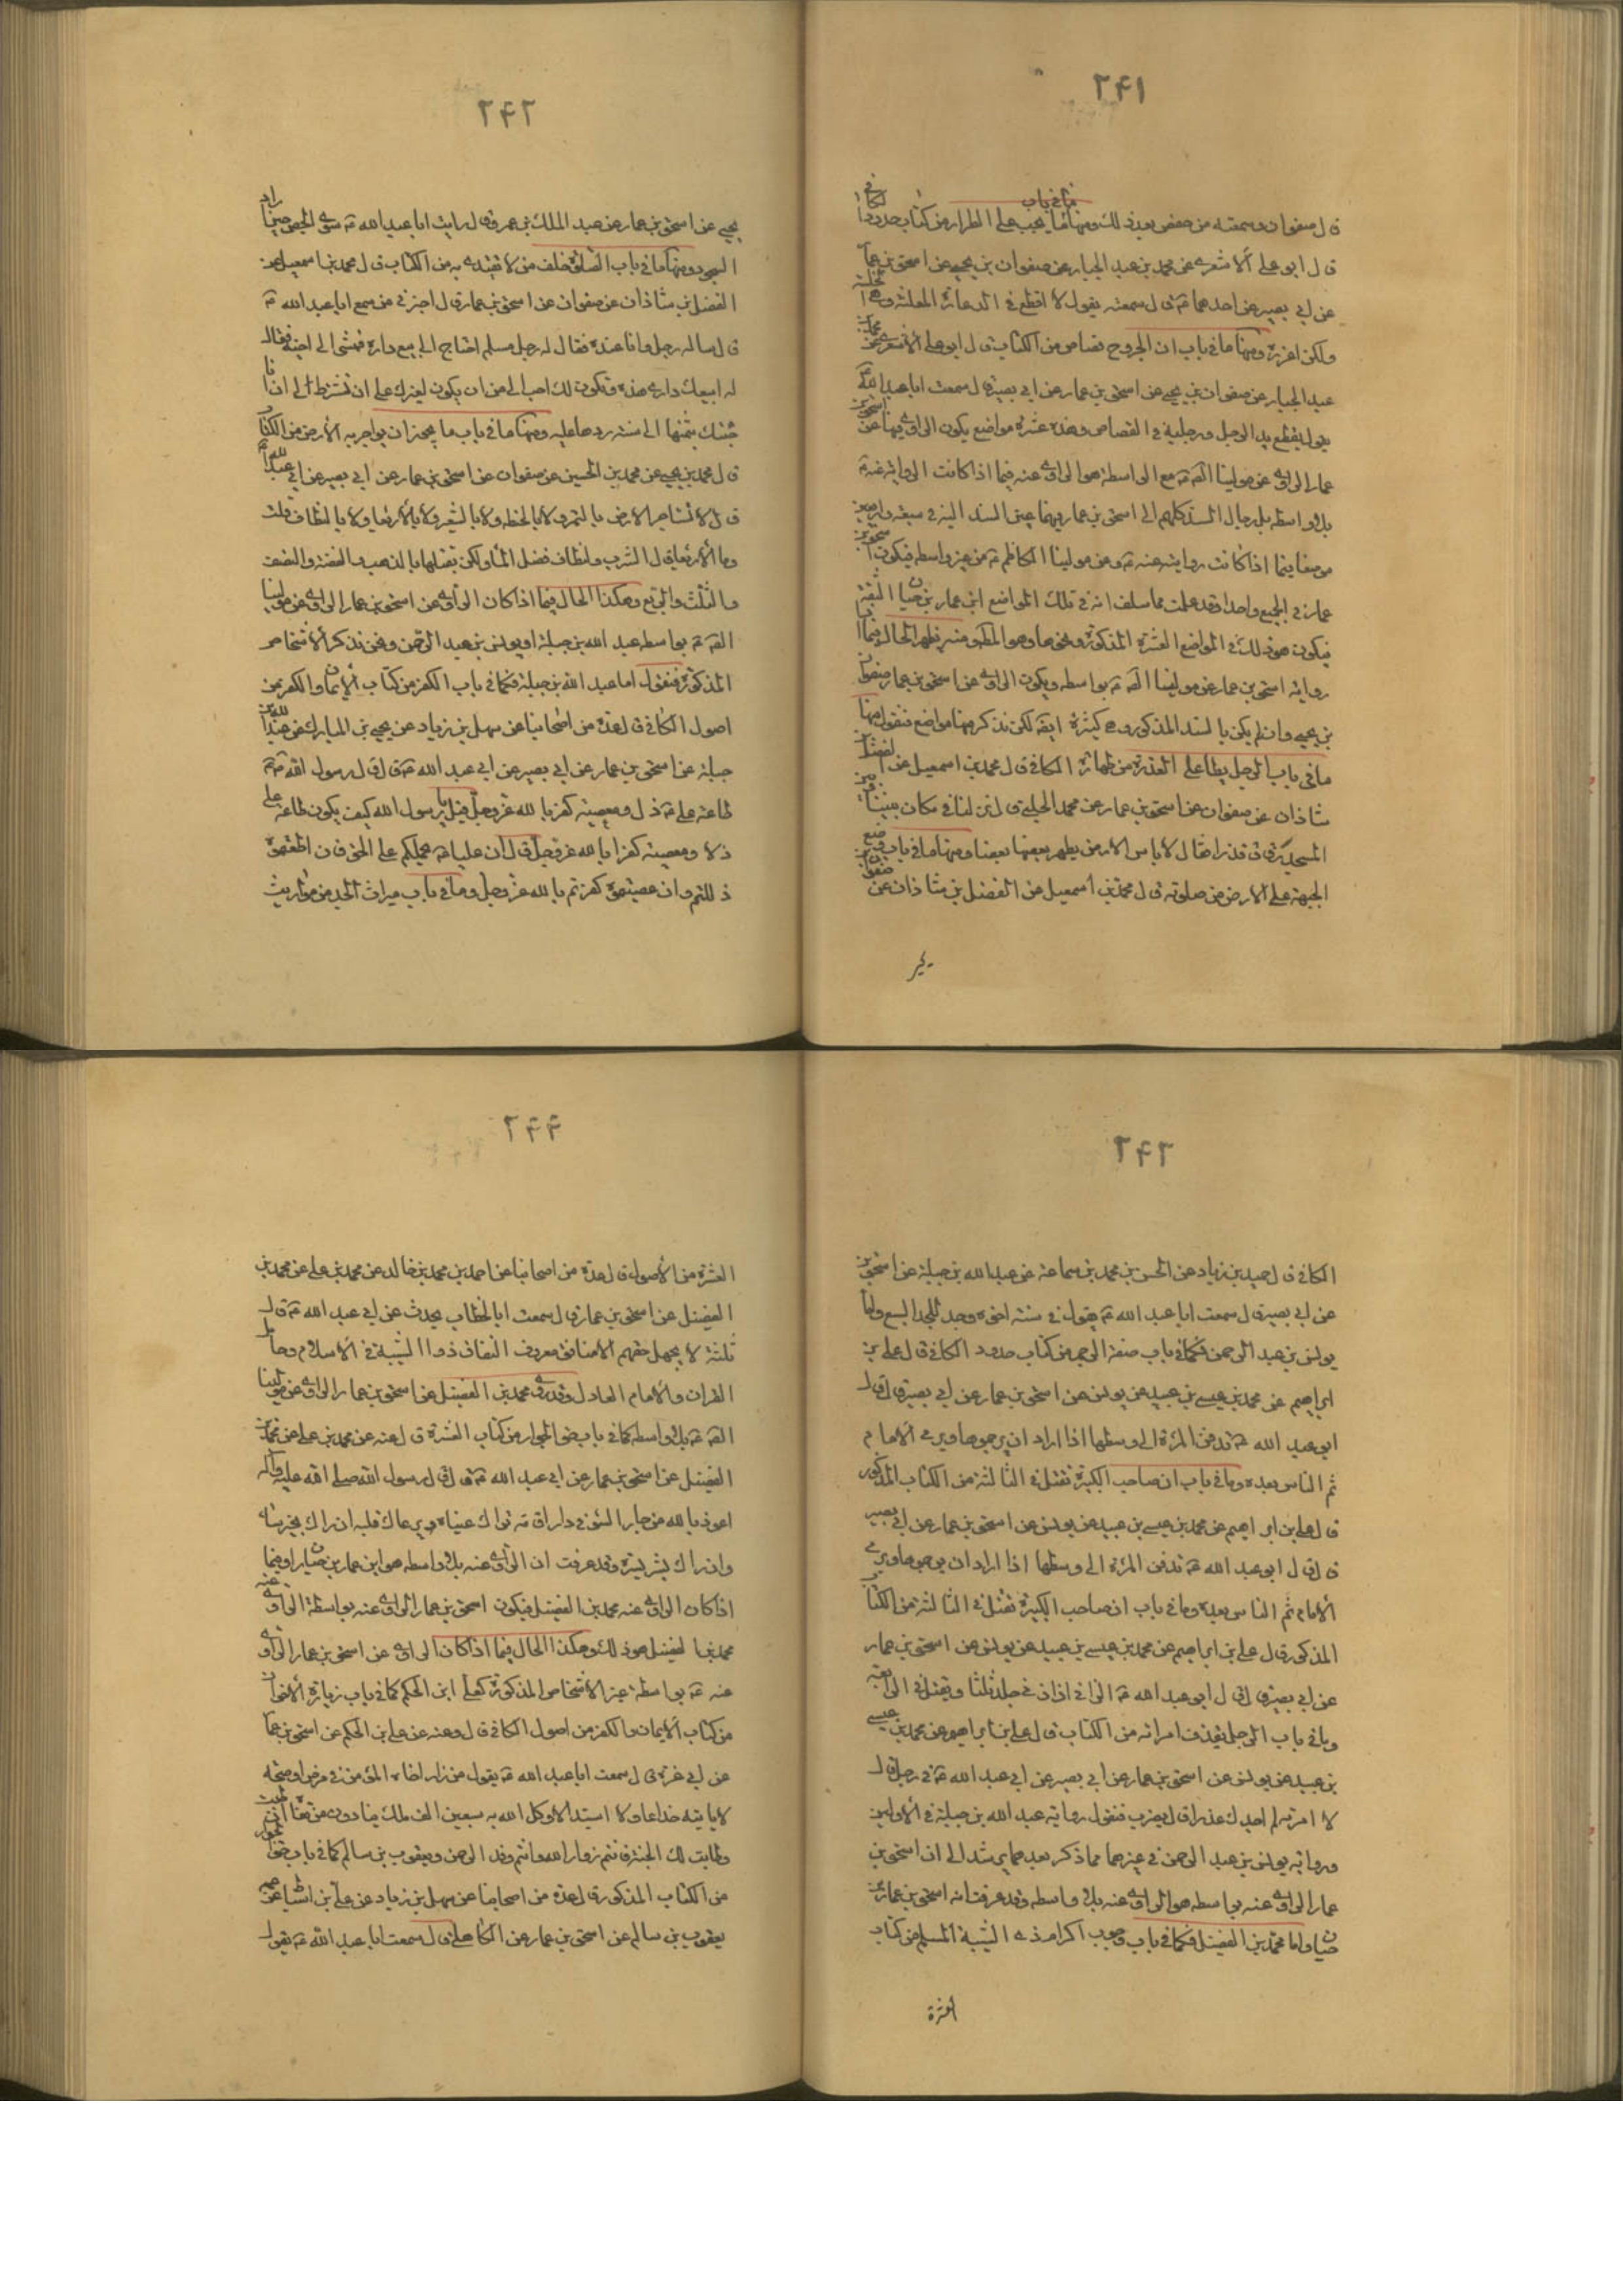 ۲۴۱
قال صفوان وسمعته من حفص بعد ذلك ومنها ما في باب ما يجب على الطرار من كتاب حدود الكافي
قال ابو على الاشعري عن محمد بن عبد الجبار عن صفوان بن يحيى عن اسحق بن عمار
عن ابي بصير عن احدهما ع قال سمعته يقول لا اقطع في الدعارة المعلنة وهي الخلسة
ولكن اعزره ومنها ما في باب ان الجروح قصاص من الكتاب قال ابو على الاشعري عن محمد بن
عبد الجبار عن صفوان بن يحيى عن اسحق بن عمار عن ابي بصير قال سمعت ابا عبد الله ع
يقول يقطع يد الرجل ورجليه في القصاص وهذه عشرة مواضع يكون الراوي فيها عن اسحق بن
عمار الراوي عن مولينا الصادق ع مع الواسطة هو الراوي عنه فيما اذا كانت الرواية عنه ع
بلا واسطة بل رجال السند كلهم الى اسحق بن عمار فيهما عين السند اليه في سبعة واربعين
موضعا فيما اذا كانت روايته عنه ع وعن مولينا الكاظم ع من غير واسطة فيكون اسحق بن
عمار في الجميع واحدا وقد علمت مما سلف انه في تلك المواضع ابن عمار بن حيان الثقة
فيكون هو ذلك في المواضع العشرة المذكورة ونحوها وهو المط ومنه يظهر الحال فيما اذا
رواية اسحق بن عمار عن مولينا الصادق ع بواسطة ويكون الراوي عن اسحق بن عمار صفوان
بن يحيى وان لم يكن بالسند المذكور وهي كثيرة ايضا لكن نذكر منها مواضع فنقول منها
ما في باب الرجل يطأ على العذرة من طهارة الكافي قال محمد بن اسمعيل عن الفضل بن
شاذان عن صفوان عن اسحق بن عمار عن محمد الحلبي قال نزلنا في مكان بيننا وبين
المسجد زقاق قذر فقال لا باس الارض يطهر بعضها بعضا ومنها ما في باب وضع
الجبهة على الارض من صلوته قال محمد بن اسمعيل عن الفضل بن شاذان عن صفوان بن
يحيى
۲۴۲
يحيى عن اسحق بن عمار عن عبد الملك بن عمرو قال رايت ابا عبد الله ع سوى الحصى حين اراد
السجود ومنها ما في باب الصلوة خلف من لا يقتدى به من الكتاب قال محمد بن اسمعيل عن
الفضل بن شاذان عن صفوان عن اسحق بن عمار قال اخبرني من سمع ابا عبد الله ع
قال ساله رجل وانا عنده فقال له رجل مسلم احتاج الى بيع داره فمشى الى اخيه فقال
له ابيعك داري هذه وتكون لك احب الى من ان يكون لغيرك على ان تشترط لي اني اذا
جئتك بثمنها الى سنة ردها عليه ومنها ما في باب ما يجوز ان يواجر به الارض من الكتاب
قال محمد بن يحيى عن محمد بن الحسين عن صفوان عن اسحق بن عمار عن ابي بصير عن ابي عبد الله ع
قال لا تستاجر الارض بالتمر ولا بالحنطة ولا بالشعير ولا بالاربعا ولا بالنطاف قلت
وما الاربعا قال الشرب والنطاف فضل الماء ولكن تقبلها بالذهب والفضة والنصف
والثلث والربع وهكذا الحال فيما اذا كان الراوي عن اسحق بن عمار الراوي عن مولينا
الصادق ع بواسطة عبد الله بن جبلة او يونس بن عبد الرحمن ونحن نذكر الاشخاص
المذكورة فنقول اما عبد الله بن جبلة فكما في باب الكفر من كتاب الايمان والكفر من
اصول الكافي قال عدة من اصحابنا عن سهل بن زياد عن يحيى بن المبارك عن عبد الله بن
جبلة عن اسحق بن عمار عن ابي بصير عن ابي عبد الله ع قال قال رسول الله ص
طاعة علي ع ذل ومعصيته كفر بالله عز وجل قيل يا رسول الله كيف يكون طاعة علي
ذلا ومعصيته كفرا بالله عز وجل قال ان عليا ع يحملكم على الحق فان اطعتموه
ذللتم وان عصيتموه كفرتم بالله عز وجل وما في باب ميراث الجد من مواريث
۲۴۳
الكافي قال حميد بن زياد عن الحسن بن محمد بن سماعة عن عبد الله بن جبلة عن اسحق بن
عن ابي بصير قال سمعت ابا عبد الله ع يقول في ستة اخوة وجد للجد السبع واما
يونس بن عبد الرحمن فكما في باب صفة الرجم من كتاب حدود الكافي قال علي بن
ابراهيم عن محمد بن عيسى بن عبيد عن يونس عن اسحق بن عمار عن ابي بصير قال قال
ابو عبد الله ع تدفن المرءة الى وسطها اذا اراد ان يرجموها ويرمى الامام
ثم الناس بعده وما في باب ان صاحب الكبيرة تقتل في الثالثة من الكتاب المذكور
قال علي بن ابراهيم عن محمد بن عيسى بن عبيد عن يونس عن اسحق بن عمار عن ابي بصير
قال قال ابو عبد الله ع تدفن المرءة الى وسطها اذا اراد ان يرجموها ويرمى
الامام ثم الناس بعده وما في باب ان صاحب الكبيرة تقتل في الثالثة من الكتاب
المذكور قال علي بن ابراهيم عن محمد بن عيسى بن عبيد عن يونس عن اسحق بن عمار
عن ابي بصير قال قال ابو عبد الله ع الزاني اذا زنى جلد ثلثا ويقتل في الرابعة
وما في باب الرجل يقذف امراته من الكتاب قال علي بن ابراهيم عن محمد بن عيسى
بن عبيد عن يونس عن اسحق بن عمار عن ابي بصير عن ابي عبد الله ع في رجل قال
لامرته لم اجدك عذرا قال يضرب فنقول رواية عبد الله بن جبلة في الاولين
ورواية يونس بن عبد الرحمن في غيرهما مما ذكر بعدهما يرشد الى ان اسحق بن
عمار الراوي عنه بواسطة هو الراوي عنه بلا واسطة وقد عرفت انه اسحق بن عمار بن
حيان واما محمد بن الفضيل فكما في باب وجوب اكرام ذي الشيبة المسلم من كتاب
العشرة
۲۴۴
العشرة من الاصول قال عدة من اصحابنا عن احمد بن محمد بن خالد عن محمد بن علي عن محمد بن
الفضيل عن اسحق بن عمار قال سمعت ابا الخطاب يحدث عن ابي عبد الله ع قال
ثلثة لا يجهل حقهم الا منافق معروف النفاق ذو الشيبة في الاسلام وحامل
القران والامام العادل وقد روى محمد بن الفضيل عن اسحق بن عمار الراوي عن مولينا
الصادق ع بلا واسطة كما في باب حق الجوار من كتاب العشرة قال عنه عن محمد بن علي عن محمد بن
الفضيل عن اسحق بن عمار عن ابي عبد الله ع قال قال رسول الله صلى الله عليه واله
اعوذ بالله من جار السوء في دار اقامة تراك عيناه ويرعاك قلبه ان راك بخير ساءه
وان راك بشر سره وقد عرفت ان الراوي عنه بلا واسطة هو ابن عمار بن حيان او فيما
اذا كان الراوي عنه محمد بن الفضيل فيكون اسحق بن عمار الراوي عنه بواسطة الراوي عنه
محمد بن الفضيل هو ذلك وهكذا الحال فيما اذا كان الراوي عن اسحق بن عمار الراوي
عنه ع بواسطة غير الاشخاص المذكورة كعلي ابن الحكم كما في باب زيارة الاخوان
من كتاب الايمان والكفر من اصول الكافي قال وعنه عن علي بن الحكم عن اسحق بن عمار
عن ابي غرة قال سمعت ابا عبد الله ع يقول من زار اخاه المؤمن في مرض او صحة
لا ياتيه خداعا ولا استبدالا وكل الله به سبعين الف ملك ينادون من قفاه ان طبت
وطابت لك الجنة فانتم زوار الله وانتم وفد الرحمن ويعقوب بن سالم كما في باب حق الجوار
من الكتاب المذكور قال عدة من اصحابنا عن سهل بن زياد عن علي بن اسباط عن عمه
يعقوب بن سالم عن اسحق بن عمار عن الكاهلي قال سمعت ابا عبد الله ع يقول